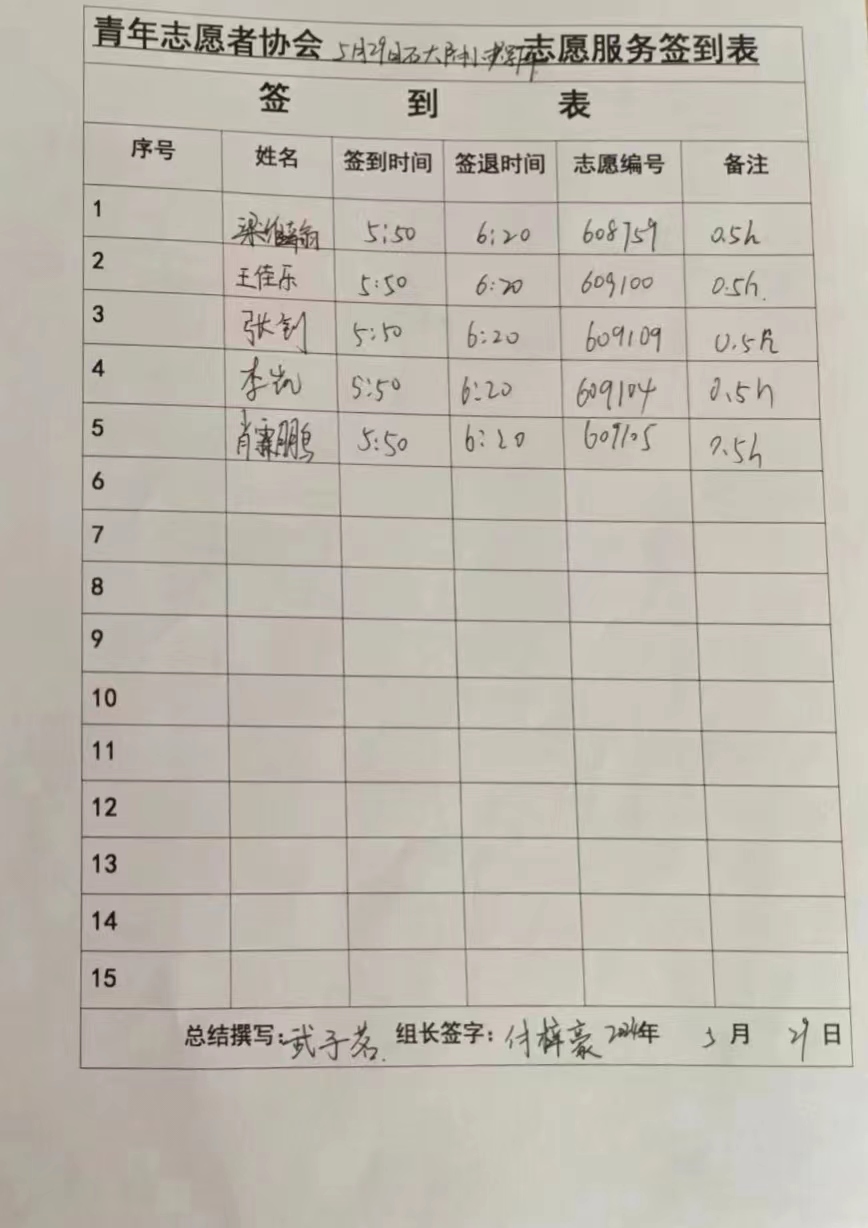 青年志愿者协会 5月29日石大附小 志愿服务签到表
签 到 表
序号 姓名 签到时间 签退时间 志愿编号 备注
1 梁 5:50 6:20 608759 0.5h
2 王佳乐 5:50 6:20 609100 0.5h.
3 张钊 5:50 6:20 609109 0.5h
4 李凯 5:50 6:20 609104 0.5h
5 肖霖鹏 5:50 6:20 609105 0.5h
6
7
8
9
10
11
12
13
14
15
总结撰写:武子茗. 组长签字: 付梓豪 2024年 5月 29日